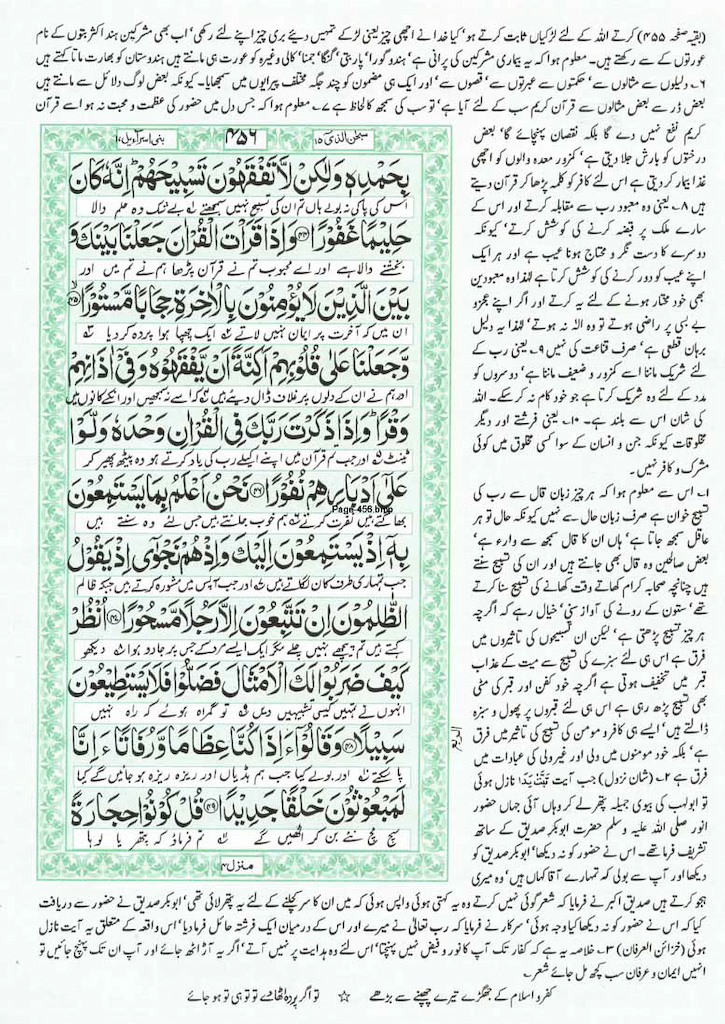 (بقیہ صفحہ ۴۵۵) کرتے اللہ کے لئے لڑکیاں ثابت کرتے ہو، کیا خدا نے اچھی چیز یعنی لڑکے تمہیں دیئے بری چیز اپنے لئے رکھی، اب بھی مشرکین ہند اکثر بتوں کے نام
عورتوں کے سے رکھتے ہیں۔ معلوم ہوا کہ یہ بیماری مشرکین کی پرانی ہے، ہندو گورا، پاربتی، گنگا، جمنا، کالی وغیرہ کو عورت ہی مانتے ہیں ہندوستان کو بھارت ماتا کہتے ہیں
۶۔ دلیلوں سے مثالوں سے، حکمتوں سے عبرتوں سے، قصوں سے، اور ایک ہی مضمون کو چند جگہ مختلف پیرایوں میں سمجھایا۔ کیونکہ بعض لوگ دلائل سے مانتے ہیں
بعض ڈر سے بعض مثالوں سے قرآن کریم سب کے لئے آیا ہے، تو سب کی سمجھ کا لحاظ ہے ۷۔ معلوم ہوا کہ جس دل میں حضور کی عظمت و محبت نہ ہو اسے قرآن
کریم نفع نہیں دے گا بلکہ نقصان پہنچائے گا، بعض
درختوں کو بارش جلا دیتی ہے، کمزور معدہ والوں کو اچھی
غذا بیمار کر دیتی ہے اس لئے کافر کو کلمہ پڑھا کر قرآن دیتے
ہیں ۸۔ یعنی وہ معبود رب سے مقابلہ کرتے اور اس کے
سارے ملک پر قبضہ کرنے کی کوشش کرتے، کیونکہ
دوسرے کا دست نگر و محتاج ہونا عیب ہے اور ہر ایک
اپنے عیب کو دور کرنے کی کوشش کرتا ہے لہٰذا وہ معبودین
بھی خود مختار ہونے کے لئے یہ کرتے اور اگر اپنے عجز و
بے بسی پر راضی ہوتے تو وہ الٰہ نہ ہوتے، لہٰذا یہ دلیل
برہان قطعی ہے، صرف قناعت کی نہیں ۹۔ یعنی رب کے
لئے شریک ماننا اسے کمزور و ضعیف ماننا ہے، دوسروں کو
مدد کے لئے وہ شریک کرتا ہے جو خود کام نہ کر سکے۔ اللہ
کی شان اس سے بلند ہے۔ ۱۰۔ یعنی فرشتے اور دیگر
مخلوقات کیونکہ جن و انسان کے سوا کسی مخلوق میں کوئی
مشرک و کافر نہیں۔
۱۔ اس سے معلوم ہوا کہ ہر چیز زبان قال سے رب کی
تسبیح خوان ہے صرف زبان حال سے نہیں کیونکہ حال تو ہر
عاقل سمجھ جاتا ہے، ہاں ان کا قال سمجھ سے وارء ہے،
بعض صالحین وہ قال بھی جانتے ہیں اور ان کی تسبیح سنتے
ہیں چنانچہ صحابہ کرام کھاتے وقت کھانے کی تسبیح سنا کرتے
تھے، ستون کے رونے کی آواز سنی، خیال رہے کہ اگرچہ
ہر چیز تسبیح پڑھتی ہے، لیکن ان تسبیحوں کی تاثیروں میں
فرق ہے اس ہی لئے سبزے کی تسبیح سے میت کے عذاب
قبر میں تخفیف ہوتی ہے اگرچہ خود کفن اور قبر کی مٹی
بھی تسبیح پڑھ رہی ہے اس ہی لئے قبروں پر پھول و سبزہ
ڈالتے ہیں، ایسے ہی کافر و مومن کی تسبیح کی تاثیر میں فرق
ہے، بلکہ خود مومنوں میں ولی اور غیر ولی کی عبادات میں
فرق ہے ۲۔ (شان نزول) جب آیت تَبَّتْ یَدَا نازل ہوئی
تو ابولہب کی بیوی جمیلہ پتھر لے کر وہاں آئی جہاں حضور
انور صلی اللہ علیہ وسلم حضرت ابوبکر صدیق کے ساتھ
تشریف فرما تھے۔ اس نے حضور کو نہ دیکھا، ابوبکر صدیق کو
دیکھا اور آپ سے بولی کہ تمہارے آقا کہاں ہیں، وہ میری
ہجو کرتے ہیں صدیق اکبر نے فرمایا کہ شعر گوئی نہیں کرتے وہ یہ کہتی ہوئی واپس ہوئی کہ میں ان کا سر کچلنے کے لئے یہ پتھر لائی تھی، ابوبکر صدیق نے حضور سے دریافت
کیا کہ اس نے حضور کو نہ دیکھا کیا وجہ ہوئی، سرکار نے فرمایا کہ رب تعالیٰ نے میرے اور اس کے درمیان ایک فرشتہ حائل فرما دیا، اس واقعہ کے متعلق یہ آیت نازل
ہوئی (خزائن العرفان) ۳۔ خلاصہ یہ ہے کہ کفار تک آپ کا نور و فیض نہیں پہنچتا، اس لئے وہ ہدایت پر نہیں آتے، اگر یہ آڑ اٹھ جائے اور آپ ان تک پہنچ جائیں تو
انہیں ایمان و عرفان سب کچھ مل جائے شعر۔
کفر و اسلام کے جھگڑے تیرے چھپنے سے بڑھے ☆ تو اگر پردہ اٹھا دے تو تو ہی تو ہو جائے
سبحٰن الذی ۱۵
۴۵۶
بنی اسرآءیل ۱۷
بِحَمْدِهٖ وَلٰكِنْ لَّا تَفْقَهُوْنَ تَسْبِيْحَهُمْ اِنَّهٗ كَانَ
اس کی پاکی نہ بولے ہاں تم ان کی تسبیح نہیں سمجھتے بے شک وہ حلم والا
حَلِيْمًا غَفُوْرًا ۴۴ وَاِذَا قَرَاْتَ الْقُرْاٰنَ جَعَلْنَا بَيْنَكَ وَ
بخشنے والا ہے اور اے محبوب تم نے قرآن پڑھا ہم نے تم میں اور
بَيْنَ الَّذِيْنَ لَا يُؤْمِنُوْنَ بِالْاٰخِرَةِ حِجَابًا مَّسْتُوْرًا ۴۵
ان میں کہ آخرت پر ایمان نہیں لاتے ایک چھپا ہوا پردہ کر دیا
وَّجَعَلْنَا عَلٰى قُلُوْبِهِمْ اَكِنَّةً اَنْ يَّفْقَهُوْهُ وَفِيْٓ اٰذَانِهِمْ
اور ہم نے ان کے دلوں پر غلاف ڈال دیئے ہیں کہ اسے نہ سمجھیں اور انکے کانوں میں
وَقْرًا وَاِذَا ذَكَرْتَ رَبَّكَ فِي الْقُرْاٰنِ وَحْدَهٗ وَلَّوْا
ٹینٹ اور جب تم قرآن میں اپنے اکیلے رب کی یاد کرتے ہو وہ پیٹھ پھیر کر
عَلٰٓى اَدْبَارِهِمْ نُفُوْرًا ۴۶ نَحْنُ اَعْلَمُ بِمَا يَسْتَمِعُوْنَ
بھاگتے ہیں نفرت کرتے ہم خوب جانتے ہیں جس لئے وہ سنتے ہیں
Page-456.bmp
بِهٖٓ اِذْ يَسْتَمِعُوْنَ اِلَيْكَ وَاِذْ هُمْ نَجْوٰٓى اِذْ يَقُوْلُ
جب تمہاری طرف کان لگاتے ہیں اور جب آپس میں مشورہ کرتے ہیں جبکہ ظالم
الظّٰلِمُوْنَ اِنْ تَتَّبِعُوْنَ اِلَّا رَجُلًا مَّسْحُوْرًا ۴۷ اُنْظُرْ
کہتے ہیں تم پیچھے نہیں چلے مگر ایک ایسے مرد کے جس پر جادو ہوا دیکھو
كَيْفَ ضَرَبُوْا لَكَ الْاَمْثَالَ فَضَلُّوْا فَلَا يَسْتَطِيْعُوْنَ
انہوں نے تمہیں کیسی تشبیہیں دیں تو گمراہ ہوئے کہ راہ نہیں
سَبِيْلًا ۴۸ وَقَالُوْٓا ءَاِذَا كُنَّا عِظَامًا وَّرُفَاتًا ءَاِنَّا
پا سکتے اور بولے کیا جب ہم ہڈیاں اور ریزہ ریزہ ہو جائیں گے کیا
لَمَبْعُوْثُوْنَ خَلْقًا جَدِيْدًا ۴۹ قُلْ كُوْنُوْا حِجَارَةً
سچ مچ نئے بن کر اٹھیں گے تم فرماؤ کہ پتھر یا لوہا
منزل ۴
الربع